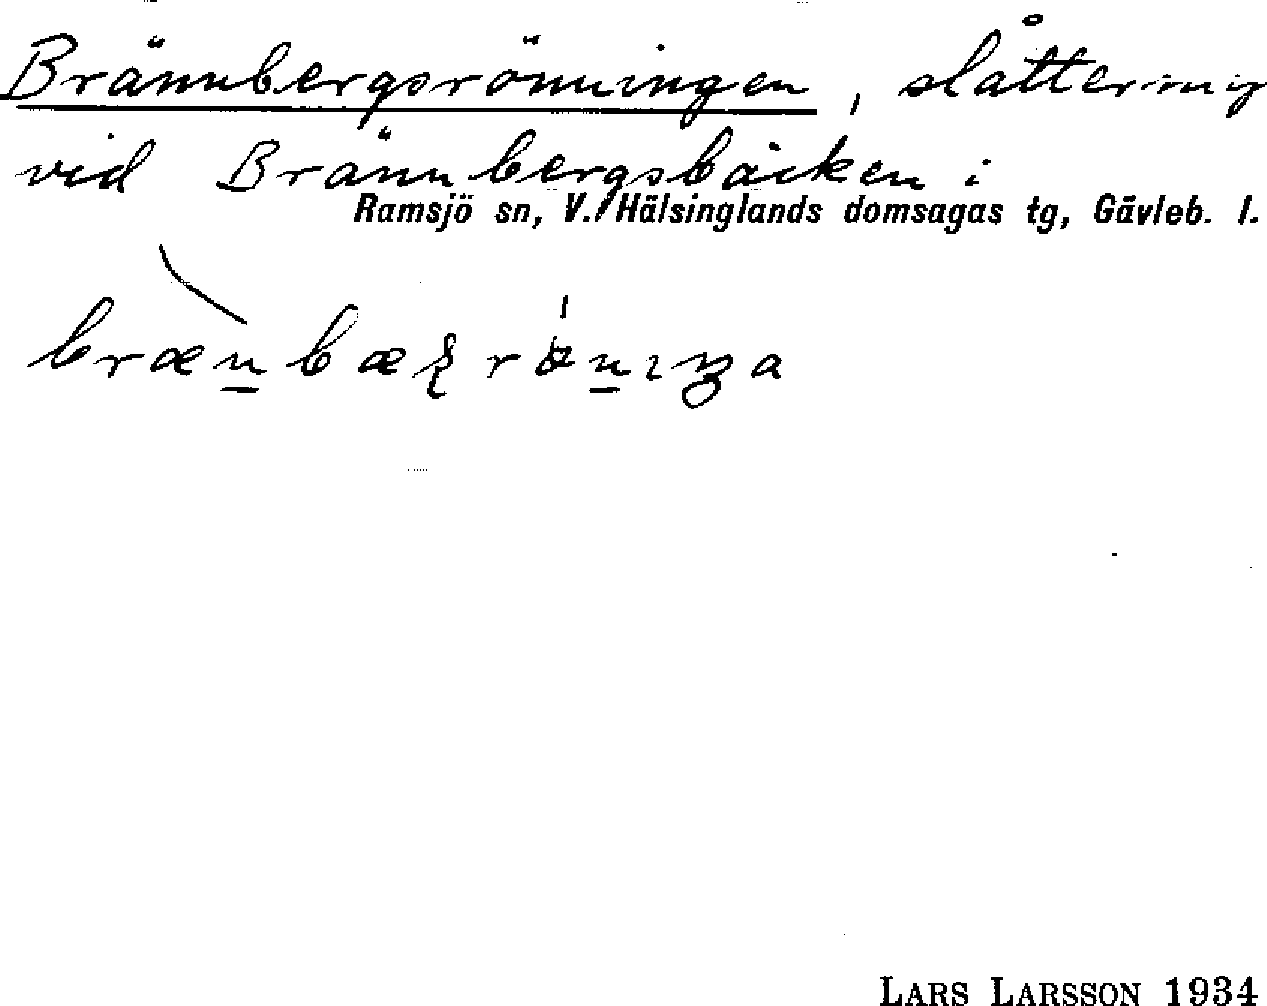 Brännbergsrönningen, slåttermyr
vid Brännbergsbäcken i
Ramsjö sn, V. Hälsinglands domsagas tg, Gävleb. l.
LARS LARSSON 1934